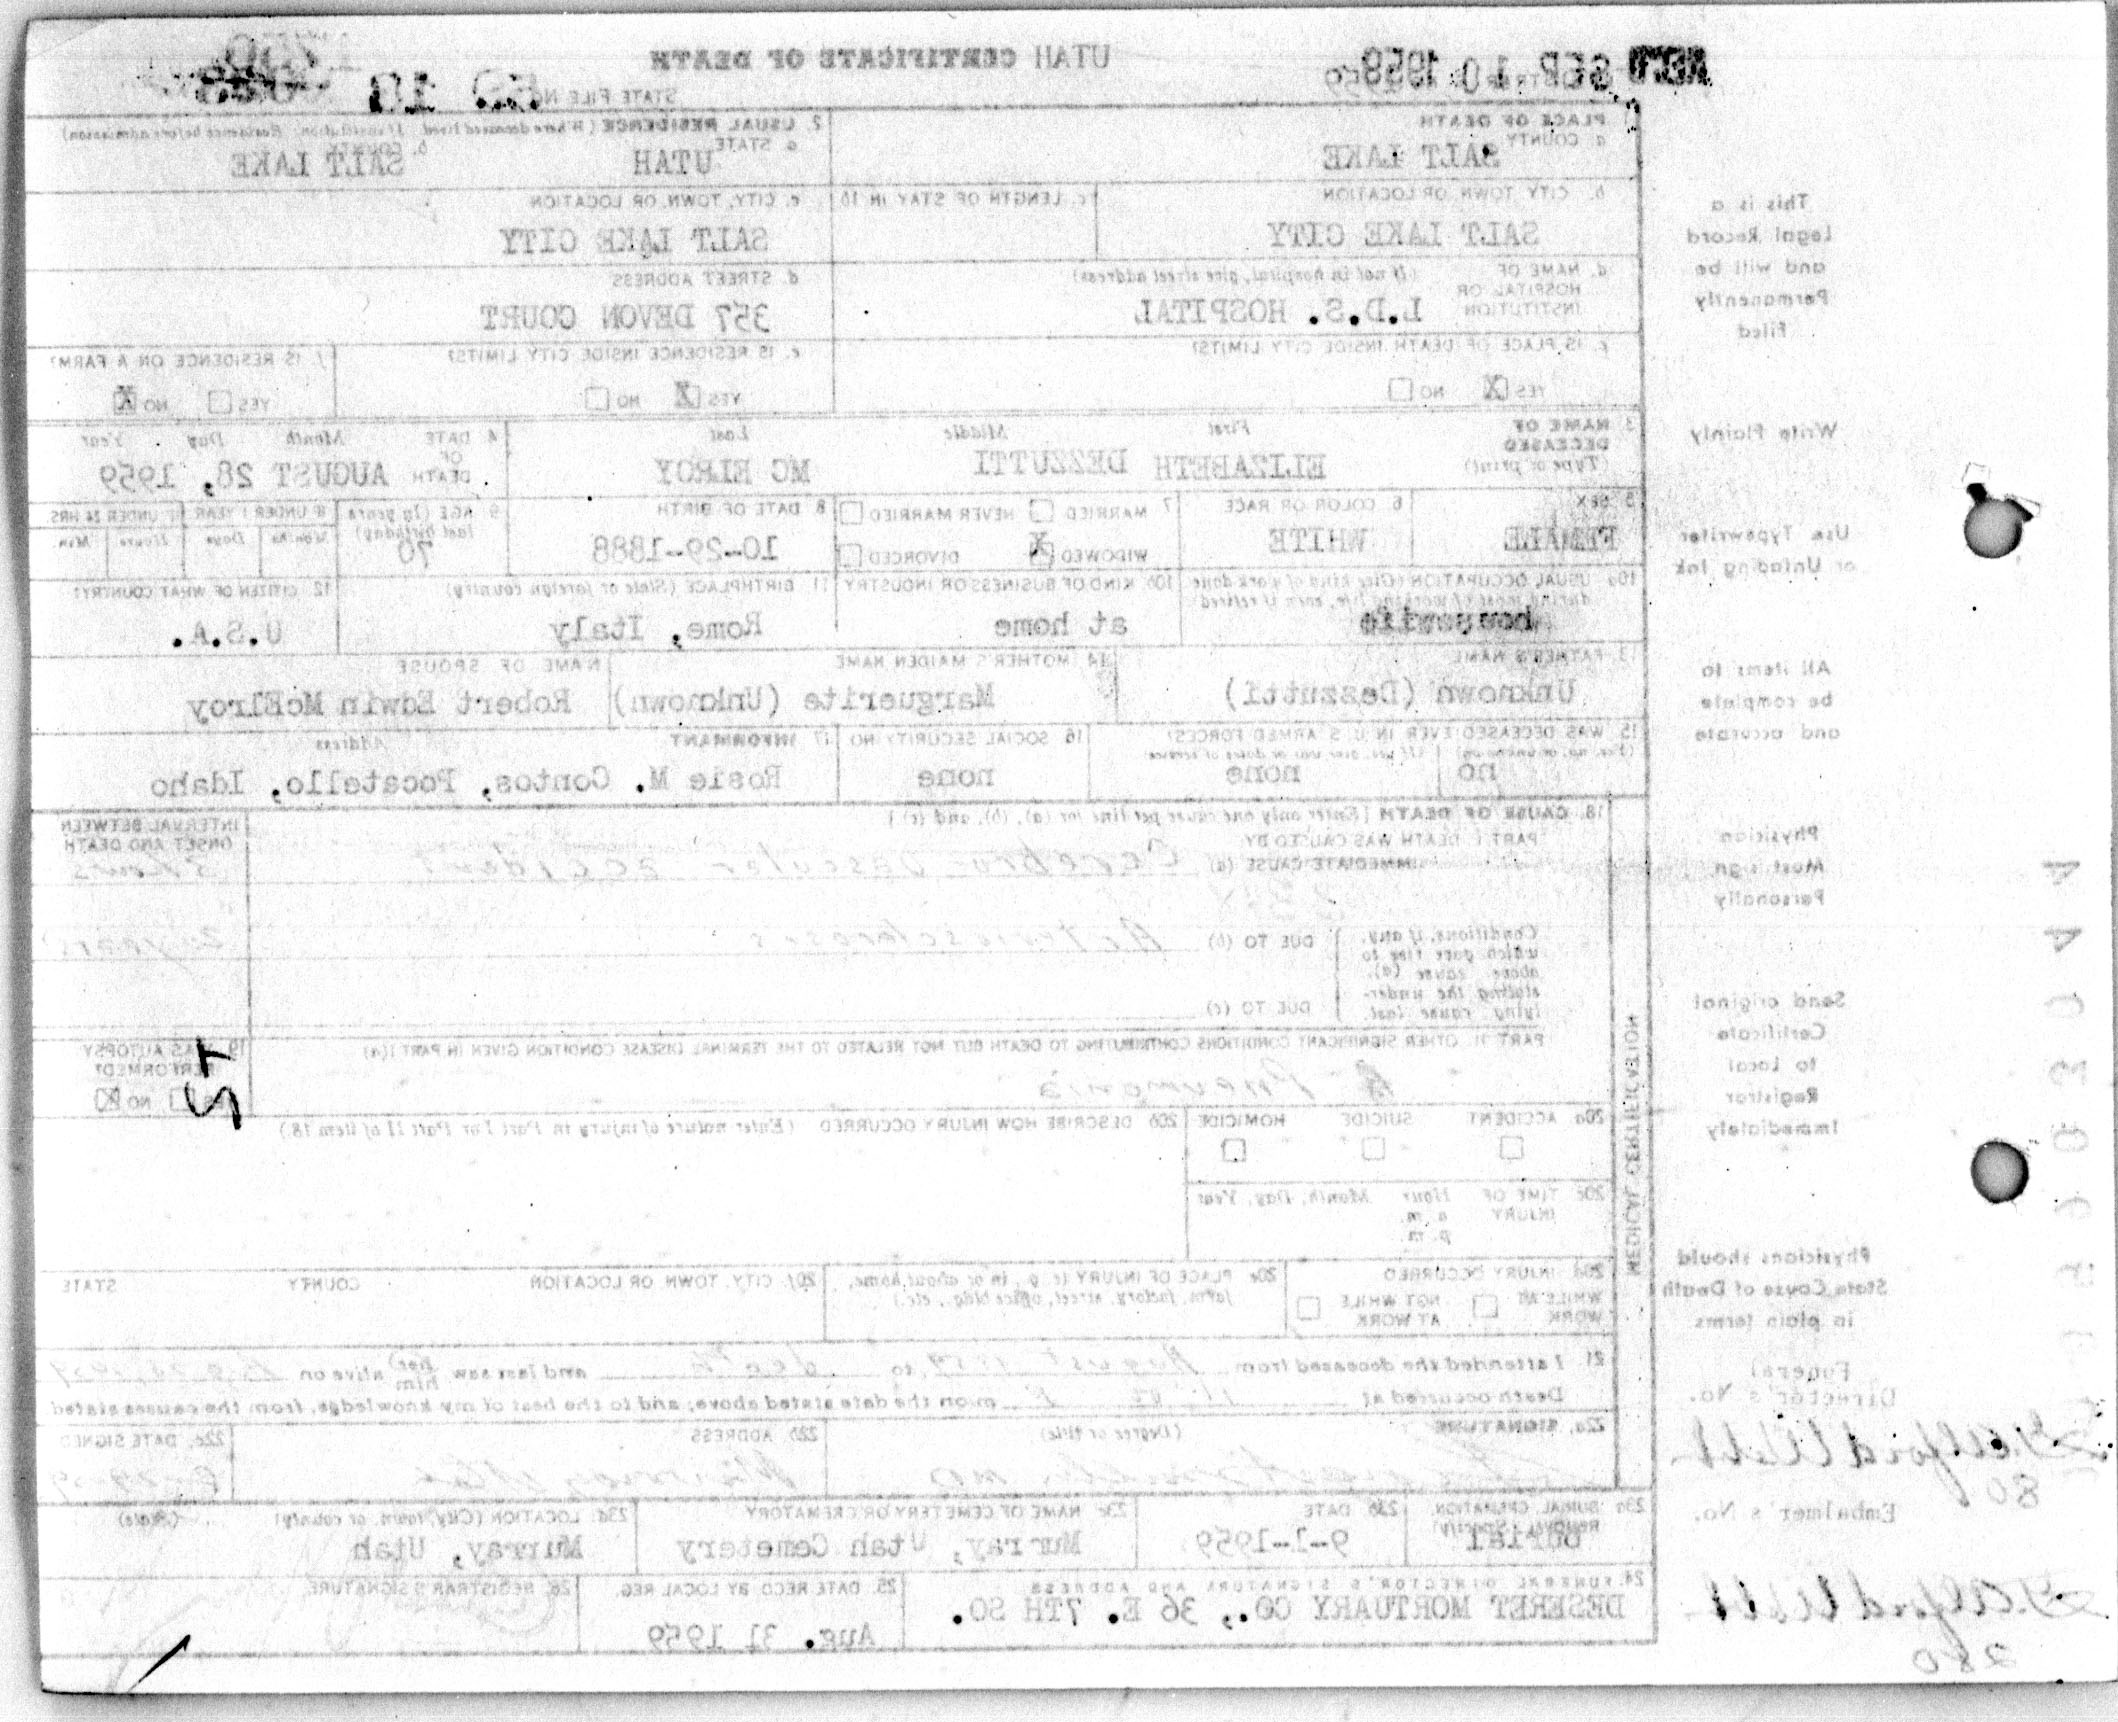 REC'D SEP 10 1959
UTAH CERTIFICATE OF DEATH
STATE FILE NO. 59 18
1. PLACE OF DEATH
a. COUNTY SALT LAKE
2. USUAL RESIDENCE (Where deceased lived. If institution: Residence before admission)
a. STATE UTAH b. COUNTY SALT LAKE
b. CITY, TOWN, OR LOCATION SALT LAKE CITY
c. LENGTH OF STAY IN 1b
c. CITY, TOWN, OR LOCATION SALT LAKE CITY
d. NAME OF HOSPITAL OR INSTITUTION (If not in hospital, give street address) L.D.S. HOSPITAL
d. STREET ADDRESS 357 DEVON COURT
e. IS PLACE OF DEATH INSIDE CITY LIMITS? YES X NO
e. IS RESIDENCE INSIDE CITY LIMITS? YES X NO
f. IS RESIDENCE ON A FARM? YES NO X
3. NAME OF DECEASED (Type or print) First Middle Last
ELIZABETH DEZZUTTI MC ELROY
4. DATE OF DEATH Month Day Year AUGUST 28, 1959
5. SEX FEMALE
6. COLOR OR RACE WHITE
7. MARRIED NEVER MARRIED WIDOWED X DIVORCED
8. DATE OF BIRTH 10-29-1888
9. AGE (In years last birthday) 70
IF UNDER 1 YEAR Months Days
IF UNDER 24 HRS. Hours Min.
10a. USUAL OCCUPATION (Give kind of work done during most of working life, even if retired) housewife
10b. KIND OF BUSINESS OR INDUSTRY at home
11. BIRTHPLACE (State or foreign country) Rome, Italy
12. CITIZEN OF WHAT COUNTRY? U.S.A.
13. FATHER'S NAME Unknown (Dezzutti)
14. MOTHER'S MAIDEN NAME Marguerite (Unknown)
NAME OF SPOUSE Robert Edwin McElroy
15. WAS DECEASED EVER IN U. S. ARMED FORCES? (Yes, no, or unknown) (If yes, give war or dates of service) no none
16. SOCIAL SECURITY NO. none
17. INFORMANT Address Rosie M. Contos, Pocatello, Idaho
18. CAUSE OF DEATH [Enter only one cause per line for (a), (b), and (c).]
PART I. DEATH WAS CAUSED BY:
IMMEDIATE CAUSE (a) Cerebro-vascular accident
INTERVAL BETWEEN ONSET AND DEATH
Conditions, if any, which gave rise to above cause (a), stating the underlying cause last.
DUE TO (b) Arteriosclerosis years
DUE TO (c)
PART II. OTHER SIGNIFICANT CONDITIONS CONTRIBUTING TO DEATH BUT NOT RELATED TO THE TERMINAL DISEASE CONDITION GIVEN IN PART I (a)
Pneumonia
19. WAS AUTOPSY PERFORMED? YES NO X
20a. ACCIDENT SUICIDE HOMICIDE
20b. DESCRIBE HOW INJURY OCCURRED (Enter nature of injury in Part I or Part II of item 18.)
20c. TIME OF INJURY Hour Month, Day, Year
a. m.
p. m.
20d. INJURY OCCURRED
WHILE AT WORK NOT WHILE AT WORK
20e. PLACE OF INJURY (e. g., in or about home, farm, factory, street, office bldg., etc.)
20f. CITY, TOWN, OR LOCATION COUNTY STATE
21. I attended the deceased from August 1959, to death and last saw her him alive on
Death occurred at m on the date stated above; and to the best of my knowledge, from the causes stated
22a. SIGNATURE (Degree or title) MD
22b. ADDRESS Murray Utah
22c. DATE SIGNED
23a. BURIAL, CREMATION, REMOVAL (Specify) Burial
23b. DATE 9-1-1959
23c. NAME OF CEMETERY OR CREMATORY Murray, Utah Cemetery
23d. LOCATION (City, town, or county) (State) Murray, Utah
24. FUNERAL DIRECTOR'S SIGNATURE AND ADDRESS
DESERET MORTUARY CO., 36 E. 7TH SO.
25. DATE RECD BY LOCAL REG. Aug. 31 1959
26. REGISTRAR'S SIGNATURE
MEDICAL CERTIFICATION
This is a
Legal Record
and will be
Permanently
Filed
Write Plainly
Use Typewriter
or Unfading Ink
All items to
be complete
and accurate
Physician
Must sign
Personally
Send original
Certificate
to Local
Registrar
Immediately
Physicians should
State Cause of Death
in plain terms
Funeral
Director's No.
80
Embalmer's No.
280